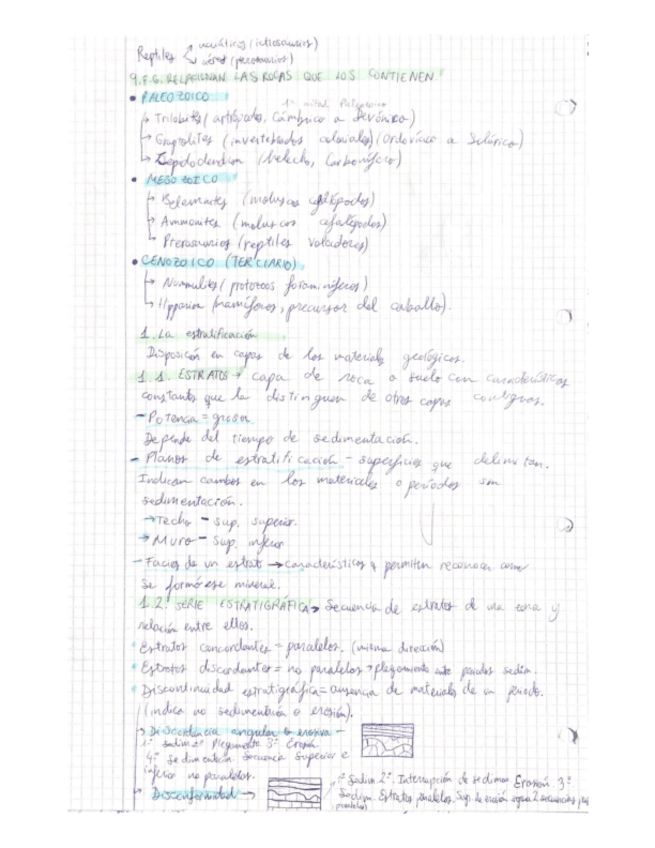 Reptiles acuáticos (ictiosaurios)
aéreos (pterosaurios)
9. F.G. RELACIONAN LAS ROCAS QUE LOS CONTIENEN.
• PALEOZOICO
↳ Trilobites (artrópodos, Cámbrico a Devónico)
↳ Graptolites (invertebrados coloniales) (Ordovícico a Silúrico)
↳ Lepidodendron (helecho, Carbonífero)
• MESOZOICO
↳ Belemnites (moluscos cefalópodos)
↳ Ammonites (moluscos cefalópodos)
↳ Pterosaurios (reptiles voladores)
• CENOZOICO (TERCIARIO)
↳ Nummulites (protozoos foraminíferos)
↳ Hipparion (mamíferos, precursor del caballo).
1. La estratificación
Disposición en capas de los materiales geológicos.
1.1. ESTRATOS → capa de roca o suelo con características
constantes que la distinguen de otras capas contiguas.
- Potencia = grosor.
Depende del tiempo de sedimentación.
- Planos de estratificación - superficies que delimitan.
Indican cambios en los materiales o períodos sin
sedimentación.
→ Techo - sup. superior.
→ Muro - sup. inferior
- Facies de un estrato → características q permiten reconocer como
se formó ese mineral.
1.2. SERIE ESTRATIGRÁFICA → Secuencia de estratos de una zona y
relación entre ellos.
• Estratos concordantes = paralelos. (misma dirección)
• Estratos discordantes = no paralelos → plegamiento entre periodos sedim.
• Discontinuidad estratigráfica = ausencia de materiales de un periodo.
(indica no sedimentación o erosión).
→ Discordancia angular o erosiva -
1º Sedim 2º Plegamiento 3º Erosión
4º Sedimentación. Secuencia superior e
inferior no paralelos.
→ Disconformidad →
1º Sedim 2º. Interrupción de sedimen Erosión 3º
Sedim. Estratos paralelos. Sup. de erosión separa 2 secuencias
paralelos)